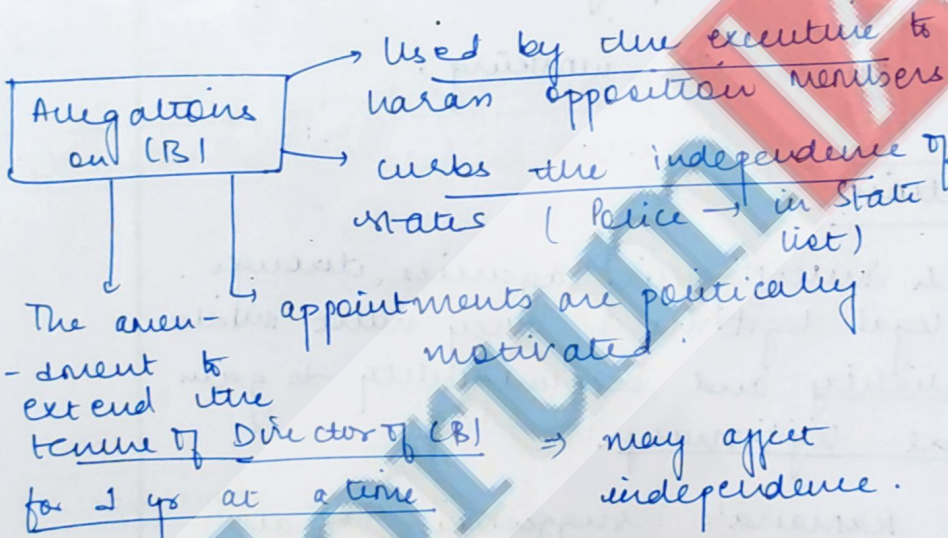 Used by the executive to
harass opposition members
Allegations
on CBI
curbs the independence of
states ( Police → in State
list)
↳ appointments are politically
motivated.
The amen-
- dment to
extend the
tenure of Director of CBI
for 1 yr at a time
⇒ may affect
independence.